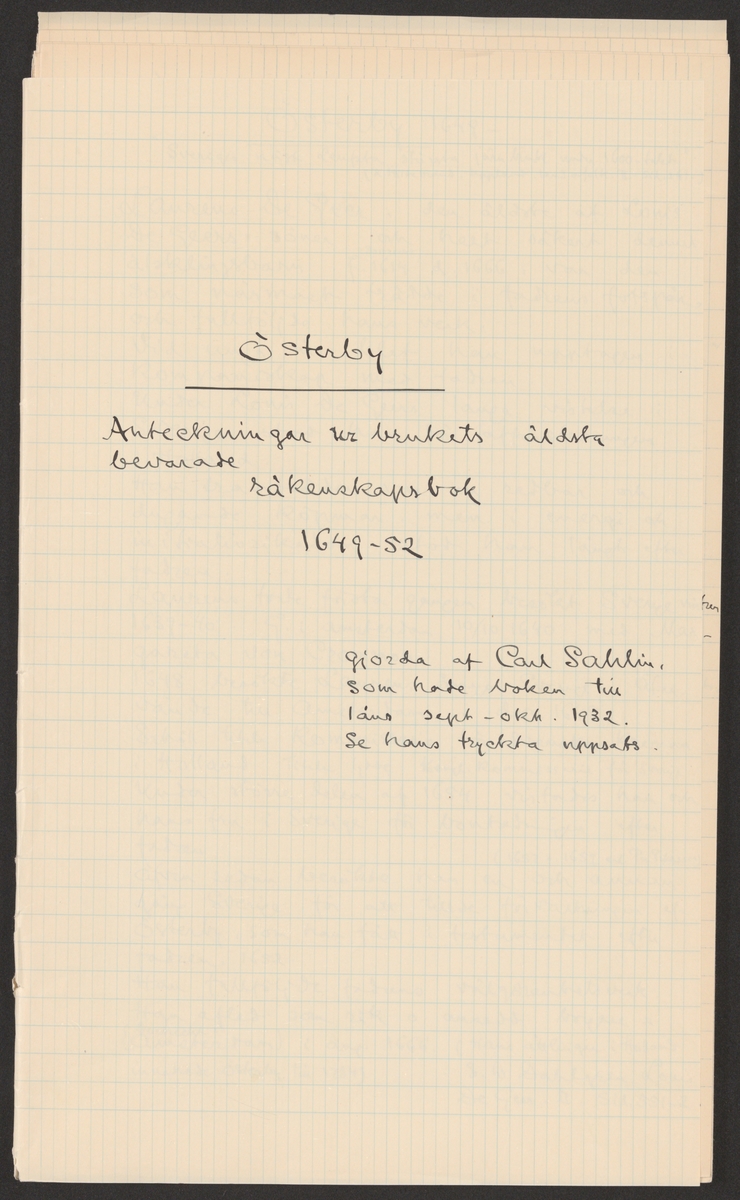 Österby
Anteckningar ur brukets äldsta
bevarade
räkenskapsbok
1649-52
gjorda af Carl Sahlin,
som hade boken till
låns sept - okt. 1932.
Se hans tryckta uppsats.